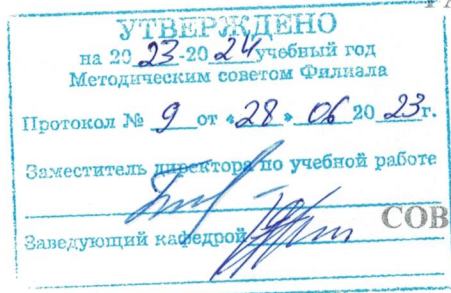 УТВЕРЖДЕНО
на 2023-2024 учебный год
Методическим советом Филиала
Протокол № 9 от «28» 06 2023г.
Заместитель директора по учебной работе
Заведующий кафедрой
СОВ